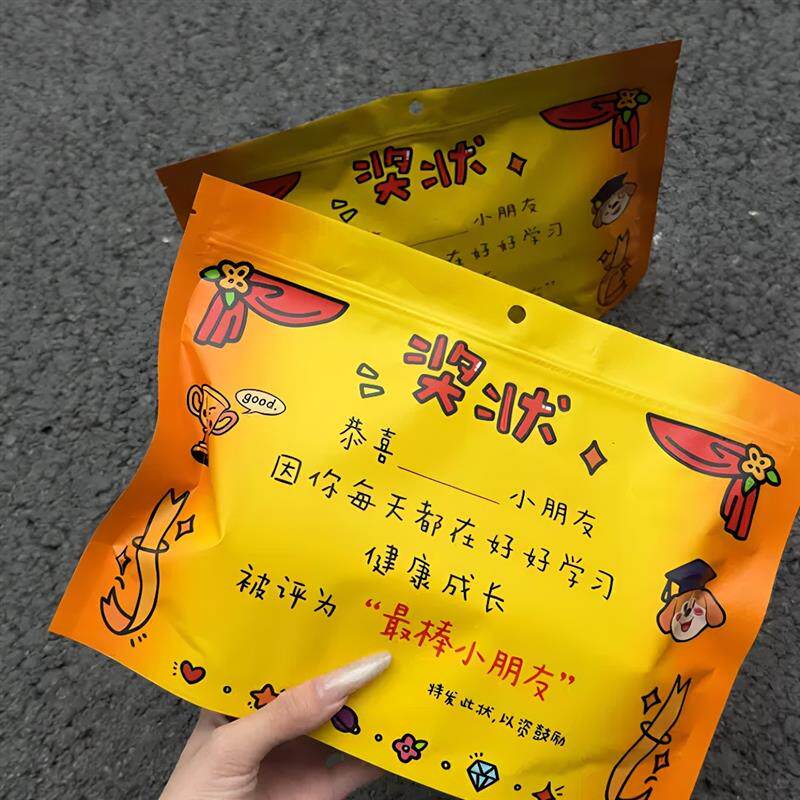 奖状
小朋友
在好好学习
奖状
good.
恭喜______小朋友
因你每天都在好好学习
健康成长
被评为“最棒小朋友”
特发此状,以资鼓励